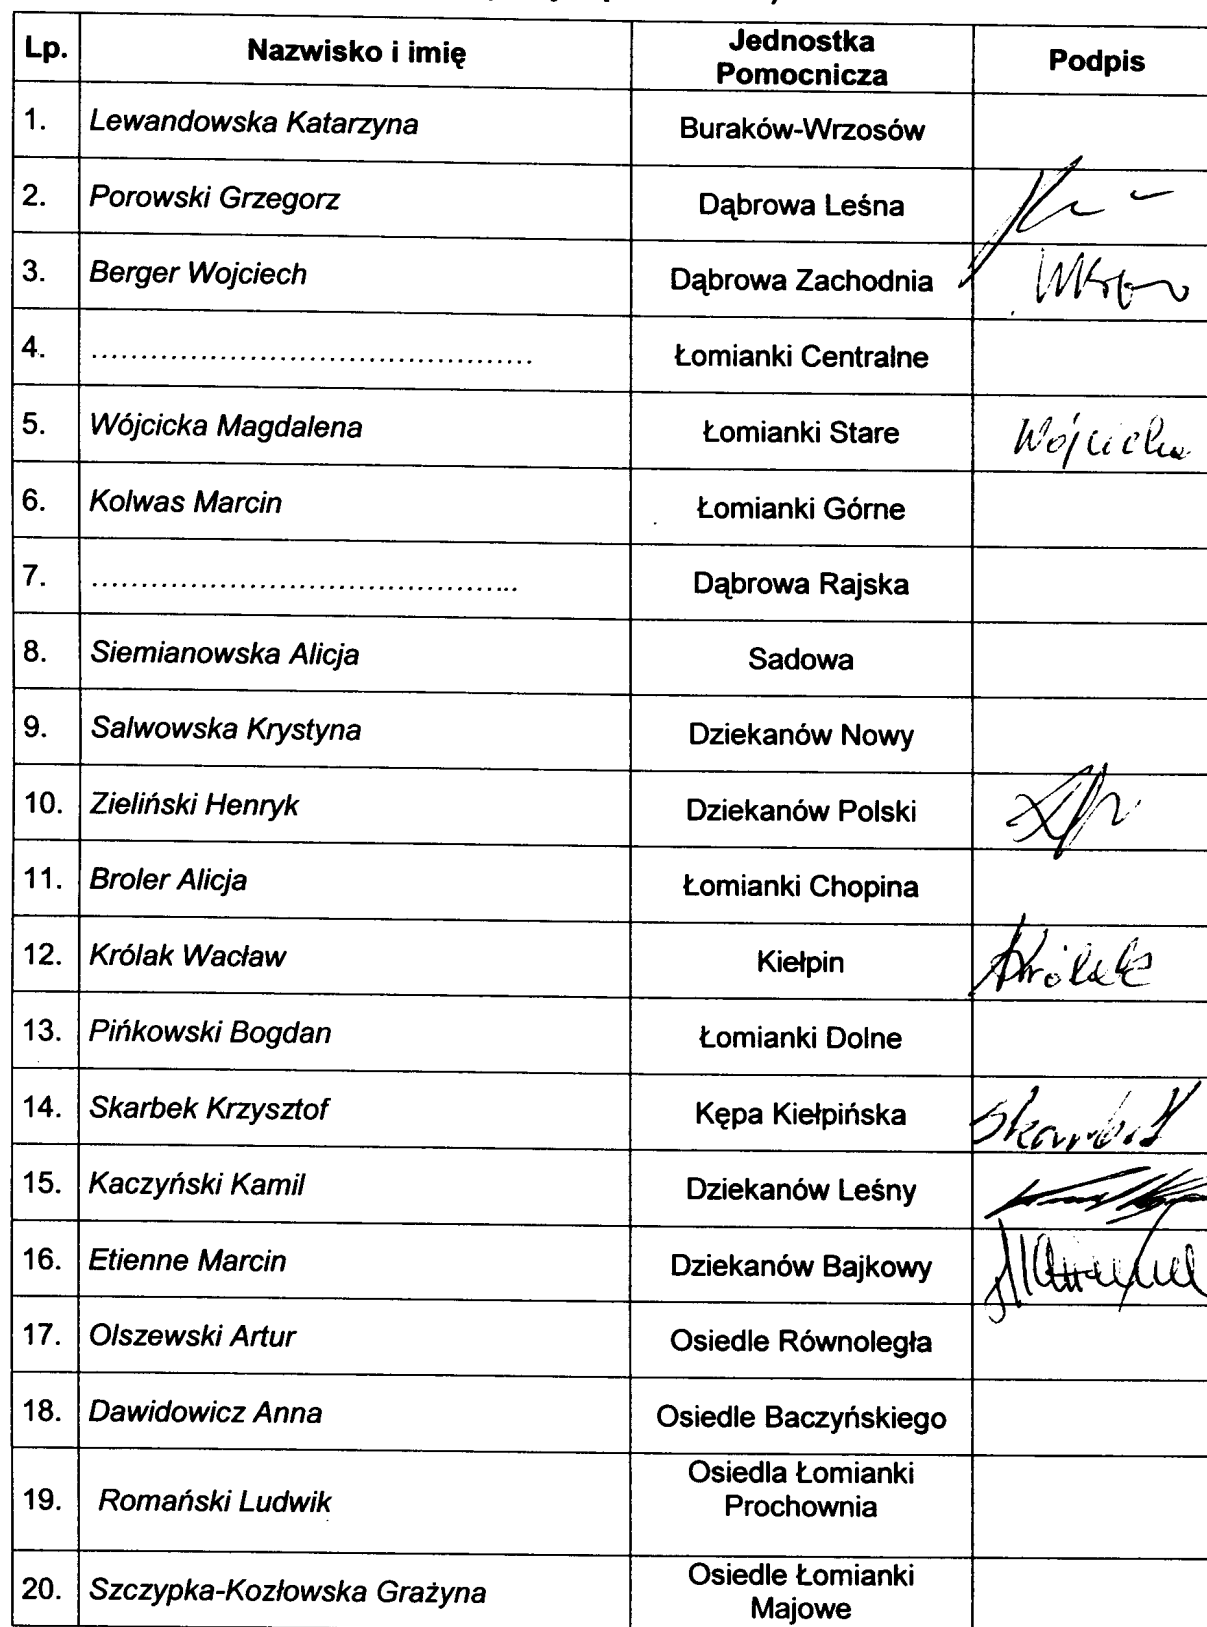 Lp. Nazwisko i imię Jednostka Pomocnicza Podpis
1. Lewandowska Katarzyna Buraków-Wrzosów
2. Porowski Grzegorz Dąbrowa Leśna
3. Berger Wojciech Dąbrowa Zachodnia
4. ............................................ Łomianki Centralne
5. Wójcicka Magdalena Łomianki Stare Wójcicka
6. Kolwas Marcin Łomianki Górne
7. ........................................... Dąbrowa Rajska
8. Siemianowska Alicja Sadowa
9. Salwowska Krystyna Dziekanów Nowy
10. Zieliński Henryk Dziekanów Polski
11. Broler Alicja Łomianki Chopina
12. Królak Wacław Kiełpin Królak
13. Pińkowski Bogdan Łomianki Dolne
14. Skarbek Krzysztof Kępa Kiełpińska Skarbek
15. Kaczyński Kamil Dziekanów Leśny
16. Etienne Marcin Dziekanów Bajkowy
17. Olszewski Artur Osiedle Równoległa
18. Dawidowicz Anna Osiedle Baczyńskiego
19. Romański Ludwik Osiedla Łomianki Prochownia
20. Szczypka-Kozłowska Grażyna Osiedle Łomianki Majowe